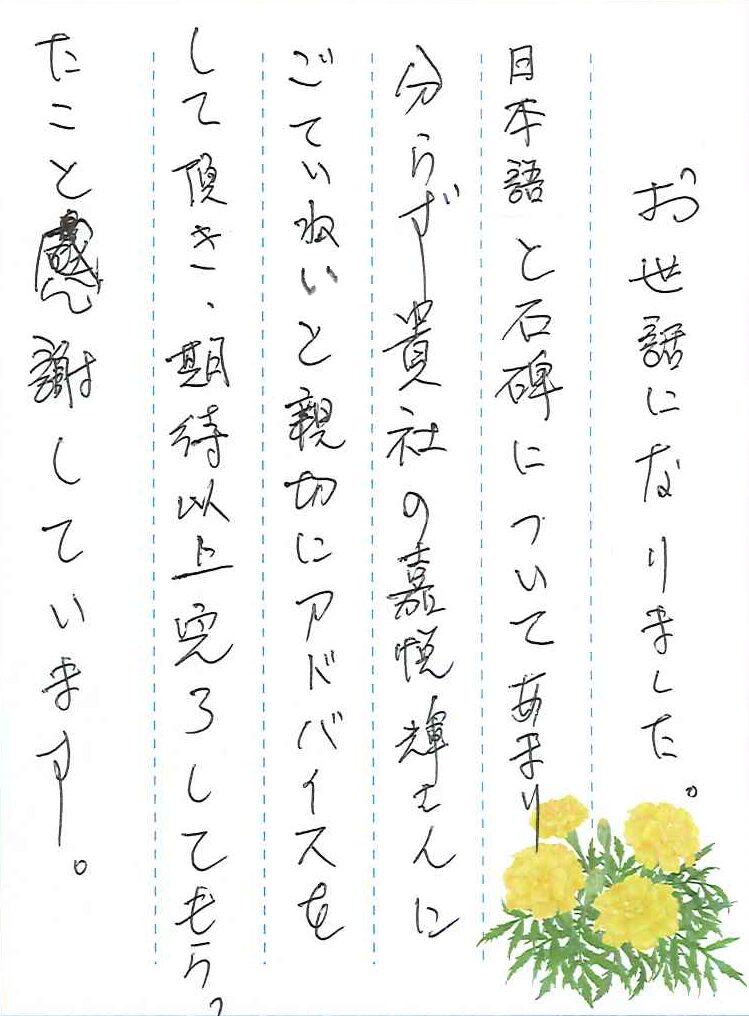 お世話になりました。
日本語と石碑についてあまり
分らず貴社の嘉悦輝さんに
ごていねいと親切にアドバイスを
して頂き、期待以上完了してもらっ
たこと感謝しています。